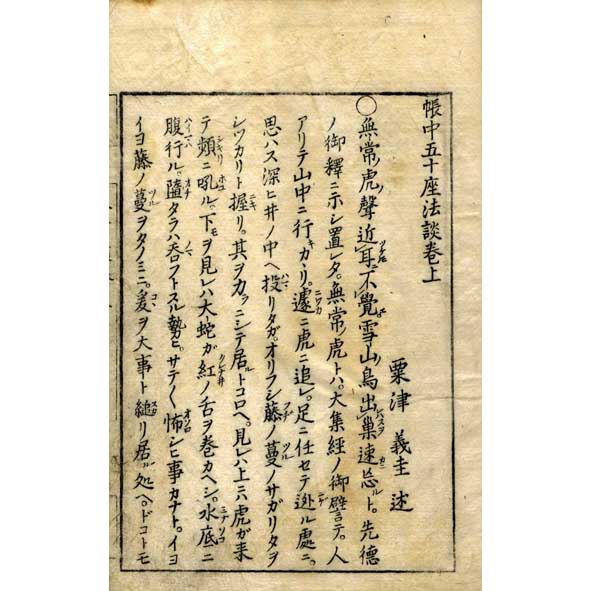 帳中五十座法談卷上
粟津義圭述
○無常ノ虎ノ聲近耳ニ不覺雪山ノ鳥出巢速忘ルト。先德
ノ御釋ニ示シ置レタ。無常ノ虎トハ。大集經ノ御譬ニテ。人
アリテ山中ニ行カヽリ。遽ニ虎ニ追レ。足ニ任セテ迯ル處ニ。
思ハス深ヒ井ノ中ヘ投リタガ。オリフシ藤ノ蔓ノサガリタヲ
シツカリト握リ。其ヲカラニシテ居ルトコロヘ。見レハ上ニハ虎ガ来
テ頻ニ吼ル。下モヲ見レハ大蛇ガ紅ノ舌ヲ巻カヘシ。水底ニ
腹行ル。墮タラハ呑フトスル勢ヒ。サテ〳〵怖シヒ事カナト。イヨ
イヨ藤ノ蔓ヲタノミニ。爰ヲ大事ト縋リ居ル処ヘ。ドコトモ